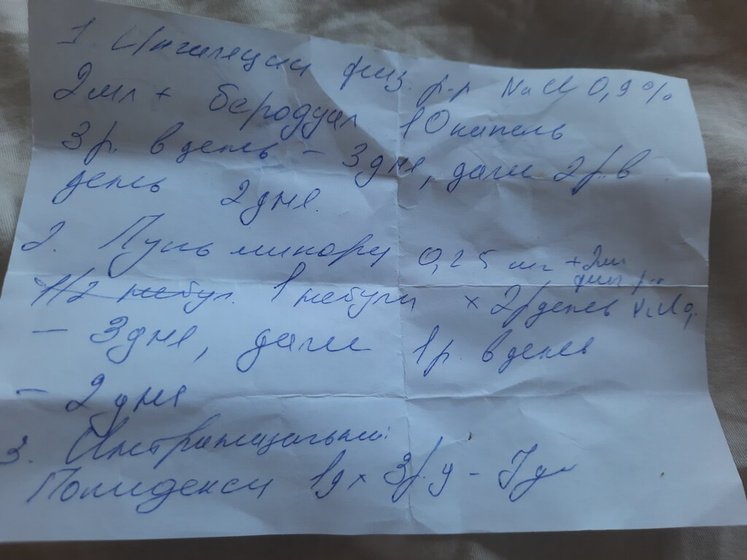 1. Ингаляции физ. р-р NaCl 0,9%
2мл + беродуал 10 капель
3 р. в день - 3 дня, далее 2 р. в
день 2 дня.
2. 0,25 мг + 2мл
1/2 небул. 1 небула х 2 р день физ р-р NaCl
- 3 дня, далее 1 р. в день
- 2 дня
3. Интраназально:
Полидекса 1д х 3 р. д - 7 дн